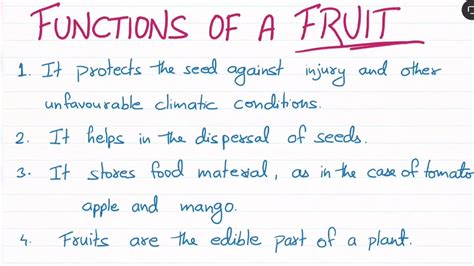 FUNCTIONS OF A FRUIT
1. It protects the seed against injury and other
unfavourable climatic conditions.
2. It helps in the dispersal of seeds.
3. It stores food material, as in the case of tomato
apple and mango.
4. Fruits are the edible part of a plant.